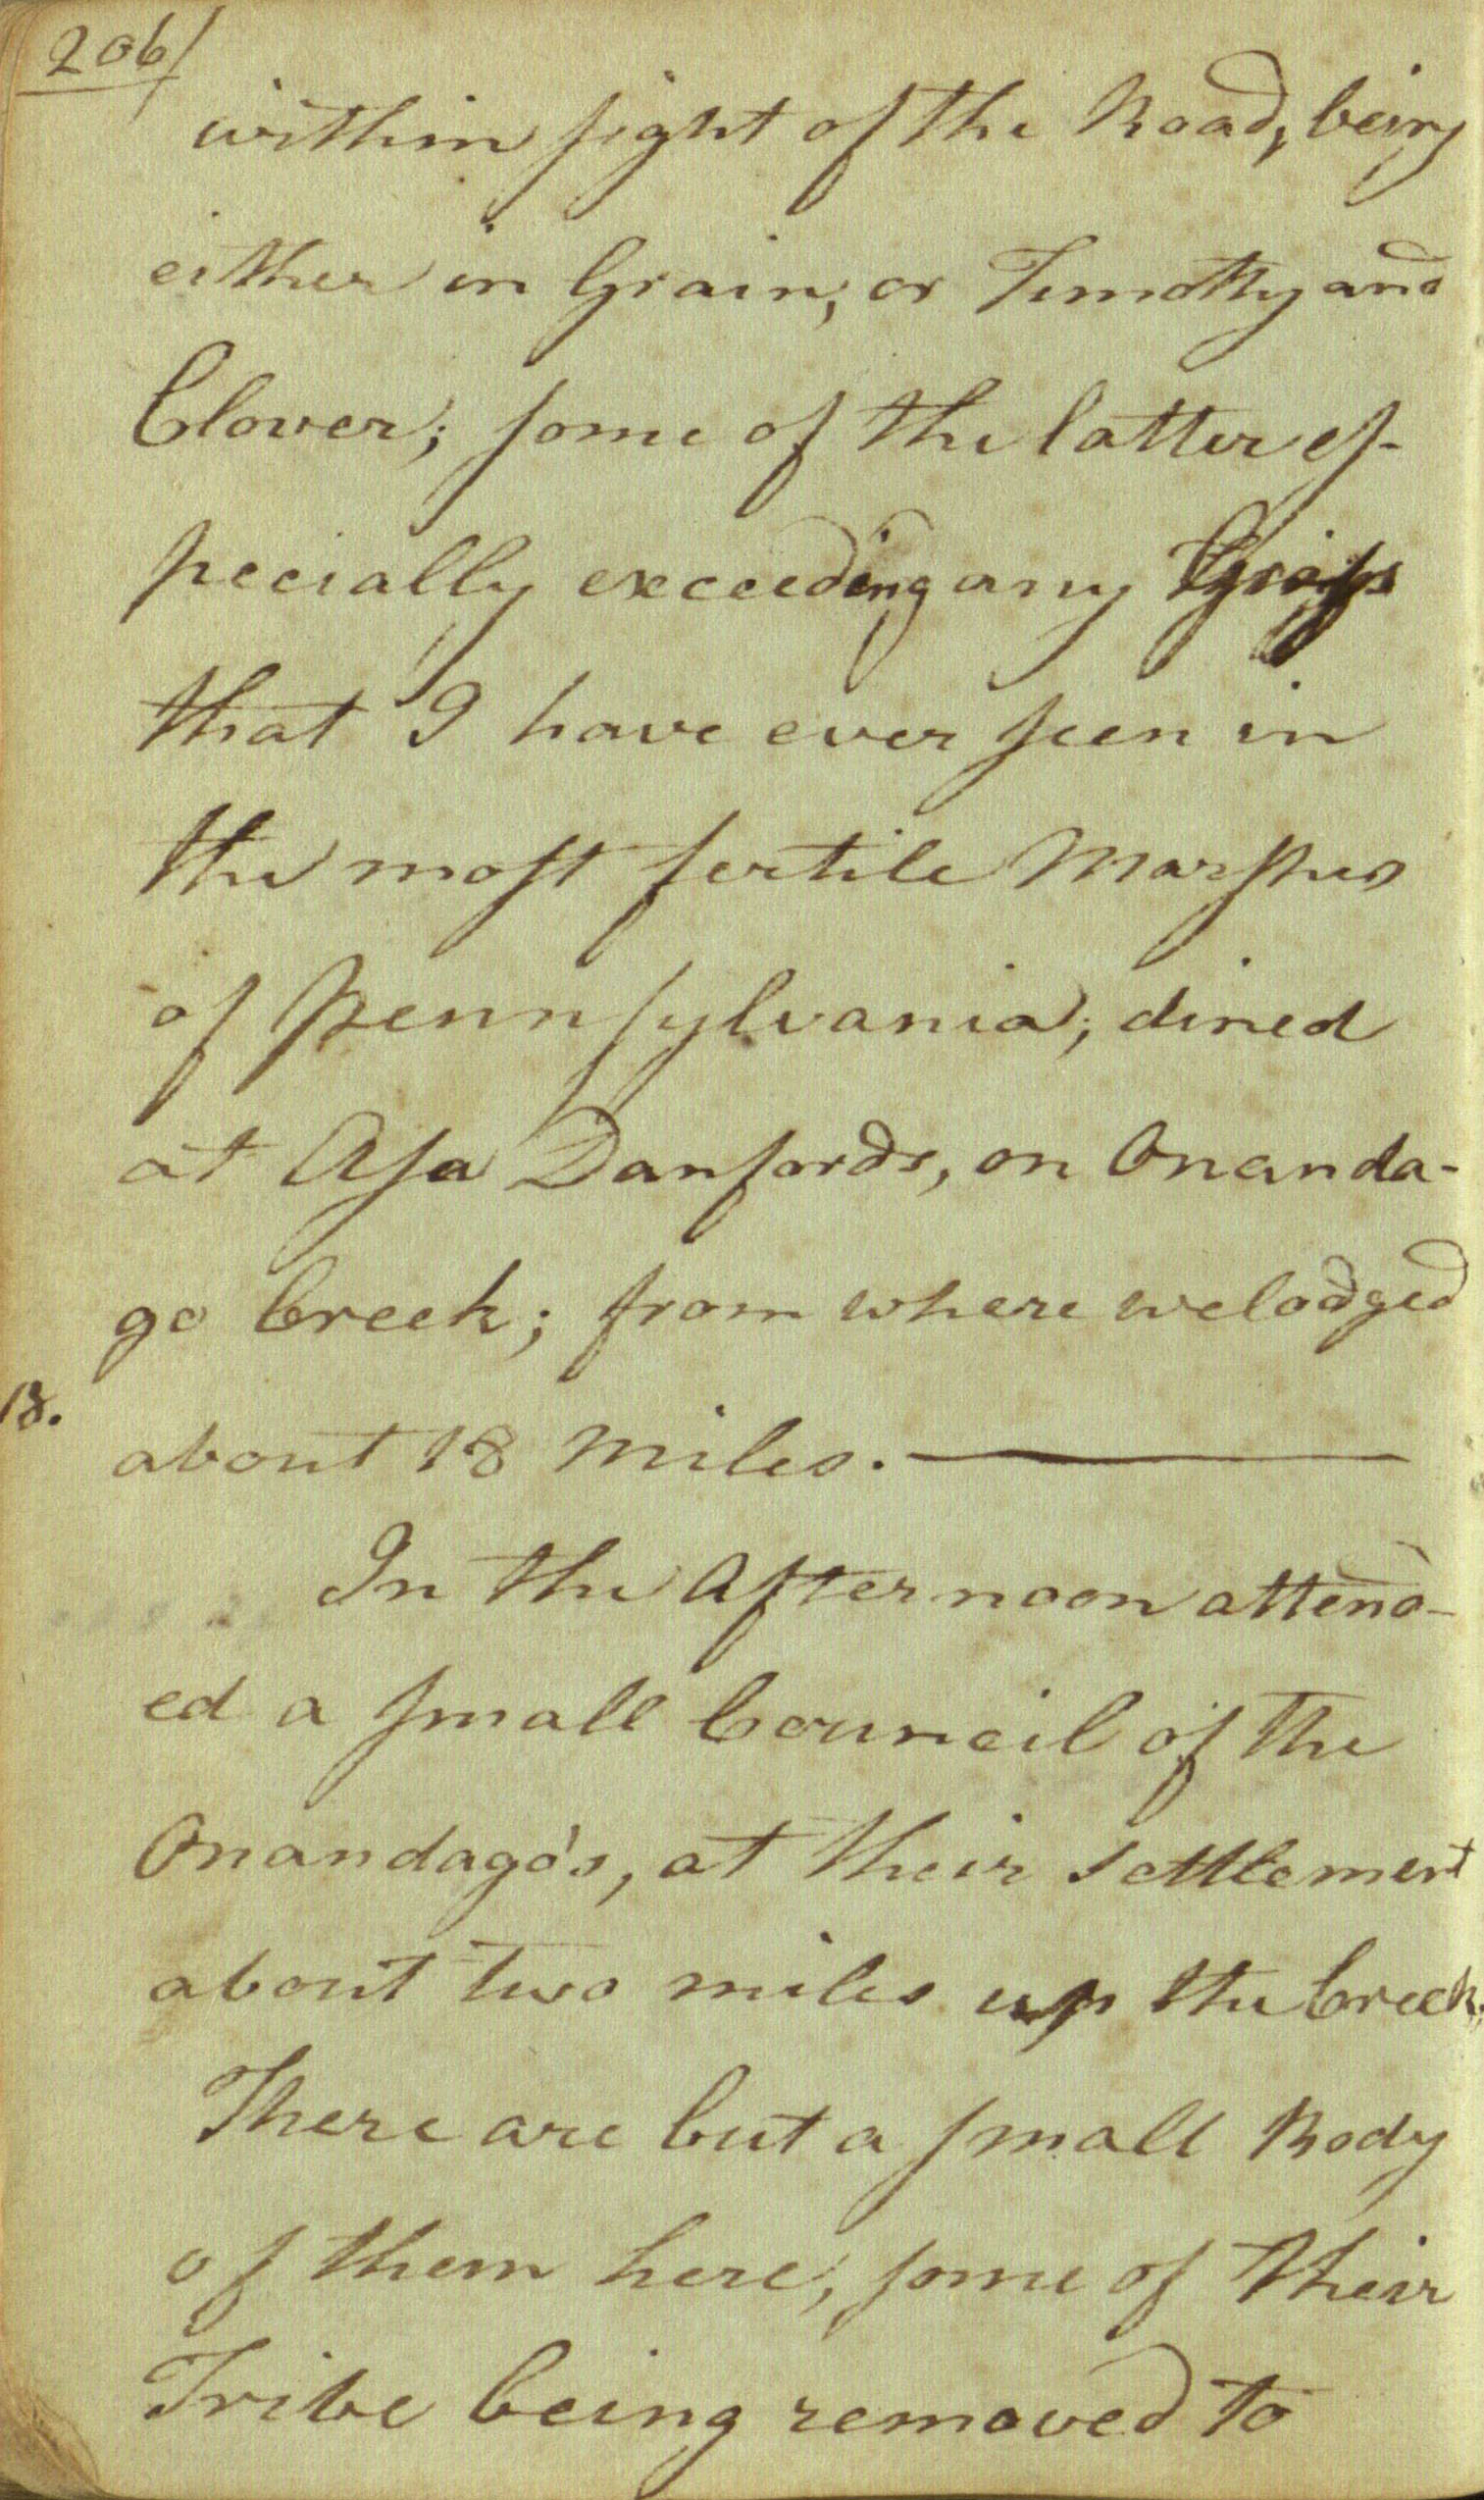 206/
within sight of the Road, being
either in Grain, or Timothy and
Clover; some of the latter es-
pecially exceeding any Grass
that I have ever seen in
the most fertile Marshes
of Pennsylvania; dined
at Asa Danfords, on Onanda-
go Creek; from where we lodged
18.
about 18 Miles.
In the Afternoon attend-
ed a small Council of the
Onandago's, at their settlement
about two miles up the Creek.
There are but a small Body
of them here, some of their
Tribe being removed to